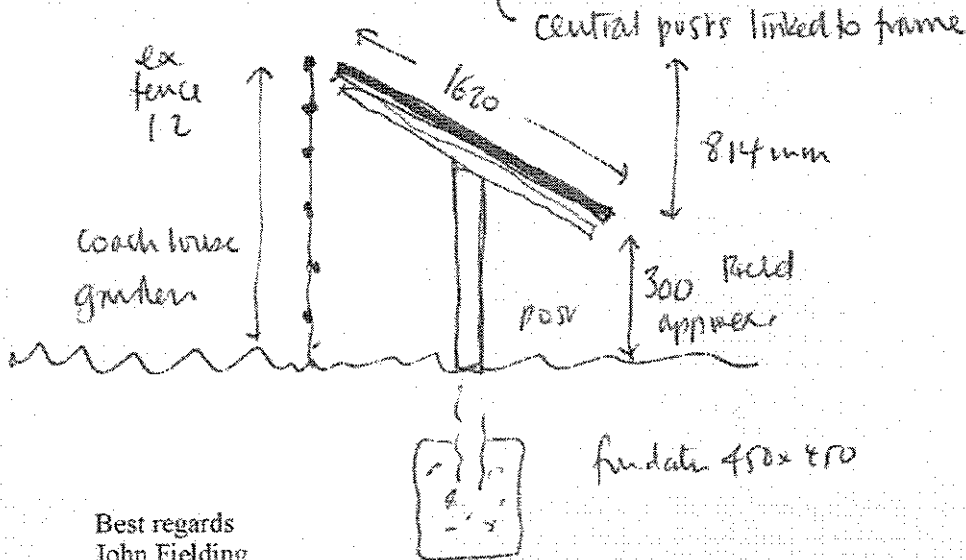 central posts linked to frame
ex
fence
1.2
1620
814 mm
coach house
garden
300 Field
approx
post
foundation 450 x 450
Best regards
John Fielding